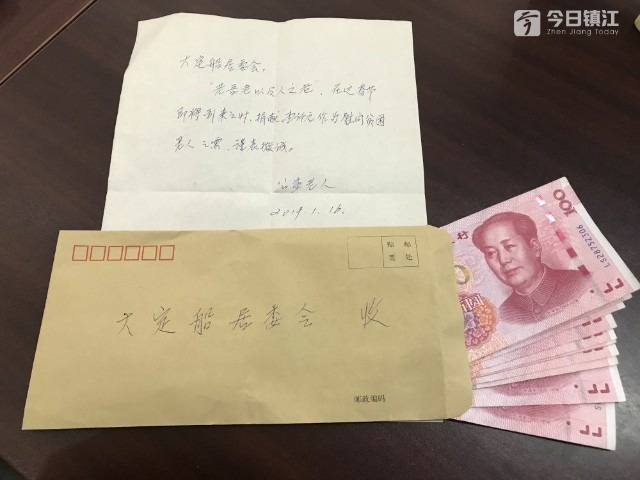 今日镇江
Zhen Jiang Today
大定船居委会,
"老吾老以及人之老", 在这春节
即将到来之时, 捐献仟元作为慰问贫困
老人之需, 谨表微诚。
老人
2019.1.16.
贴 邮
票 处
大定船居委会 收
邮政编码
100
LS28752306